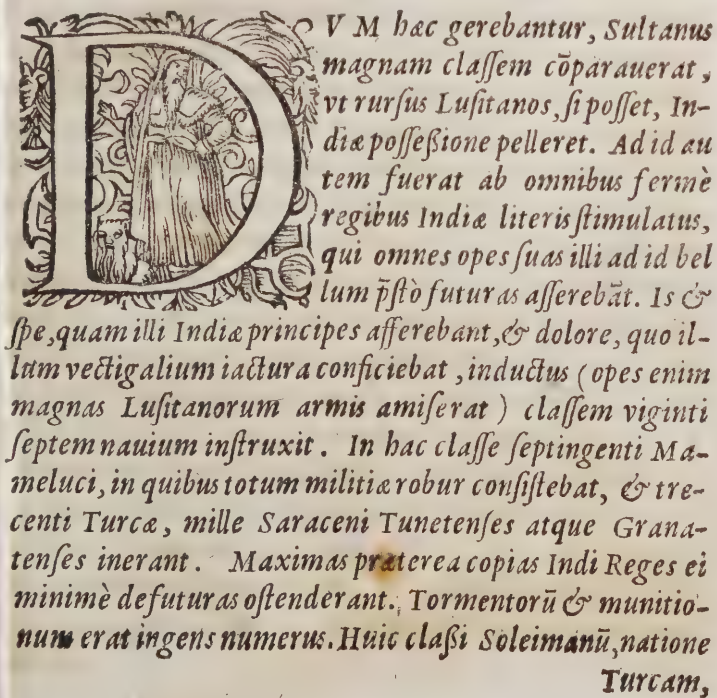 DVM hæc gerebantur, Sultanus
magnam claſſem cōparauerat,
vt rurſus Luſitanos, ſi poſſet, In-
diæ poſſeßione pelleret. Ad id au
tem fuerat ab omnibus fermè
regibus Indiæ literis ſtimulatus,
qui omnes opes ſuas illi ad id bel
lum p̄ſtò futuras aſſerebāt. Is &
ſpe, quam illi Indiæ principes afferebant, & dolore, quo il-
lum vectigalium iactura conficiebat, inductus (opes enim
magnas Luſitanorum armis amiſerat) claſſem viginti
ſeptem nauium inſtruxit. In hac claſſe ſeptingenti Ma-
meluci, in quibus totum militiæ robur conſiſtebat, & tre-
centi Turcæ, mille Saraceni Tunetenſes atque Grana-
tenſes inerant. Maximas præterea copias Indi Reges ei
minimè defuturas oſtenderant. Tormentorū & munitio-
num erat ingens numerus. Huic claßi Soleimanū, natione
Turcam,